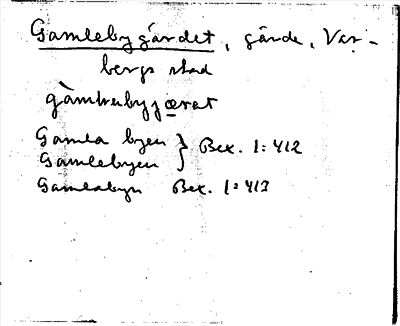 Gamlebygärdet, gärde, Var-
bergs stad
Gamla byen } Bex. 1:412
Gamlebyen
Gamlabyn Bex. 1:413